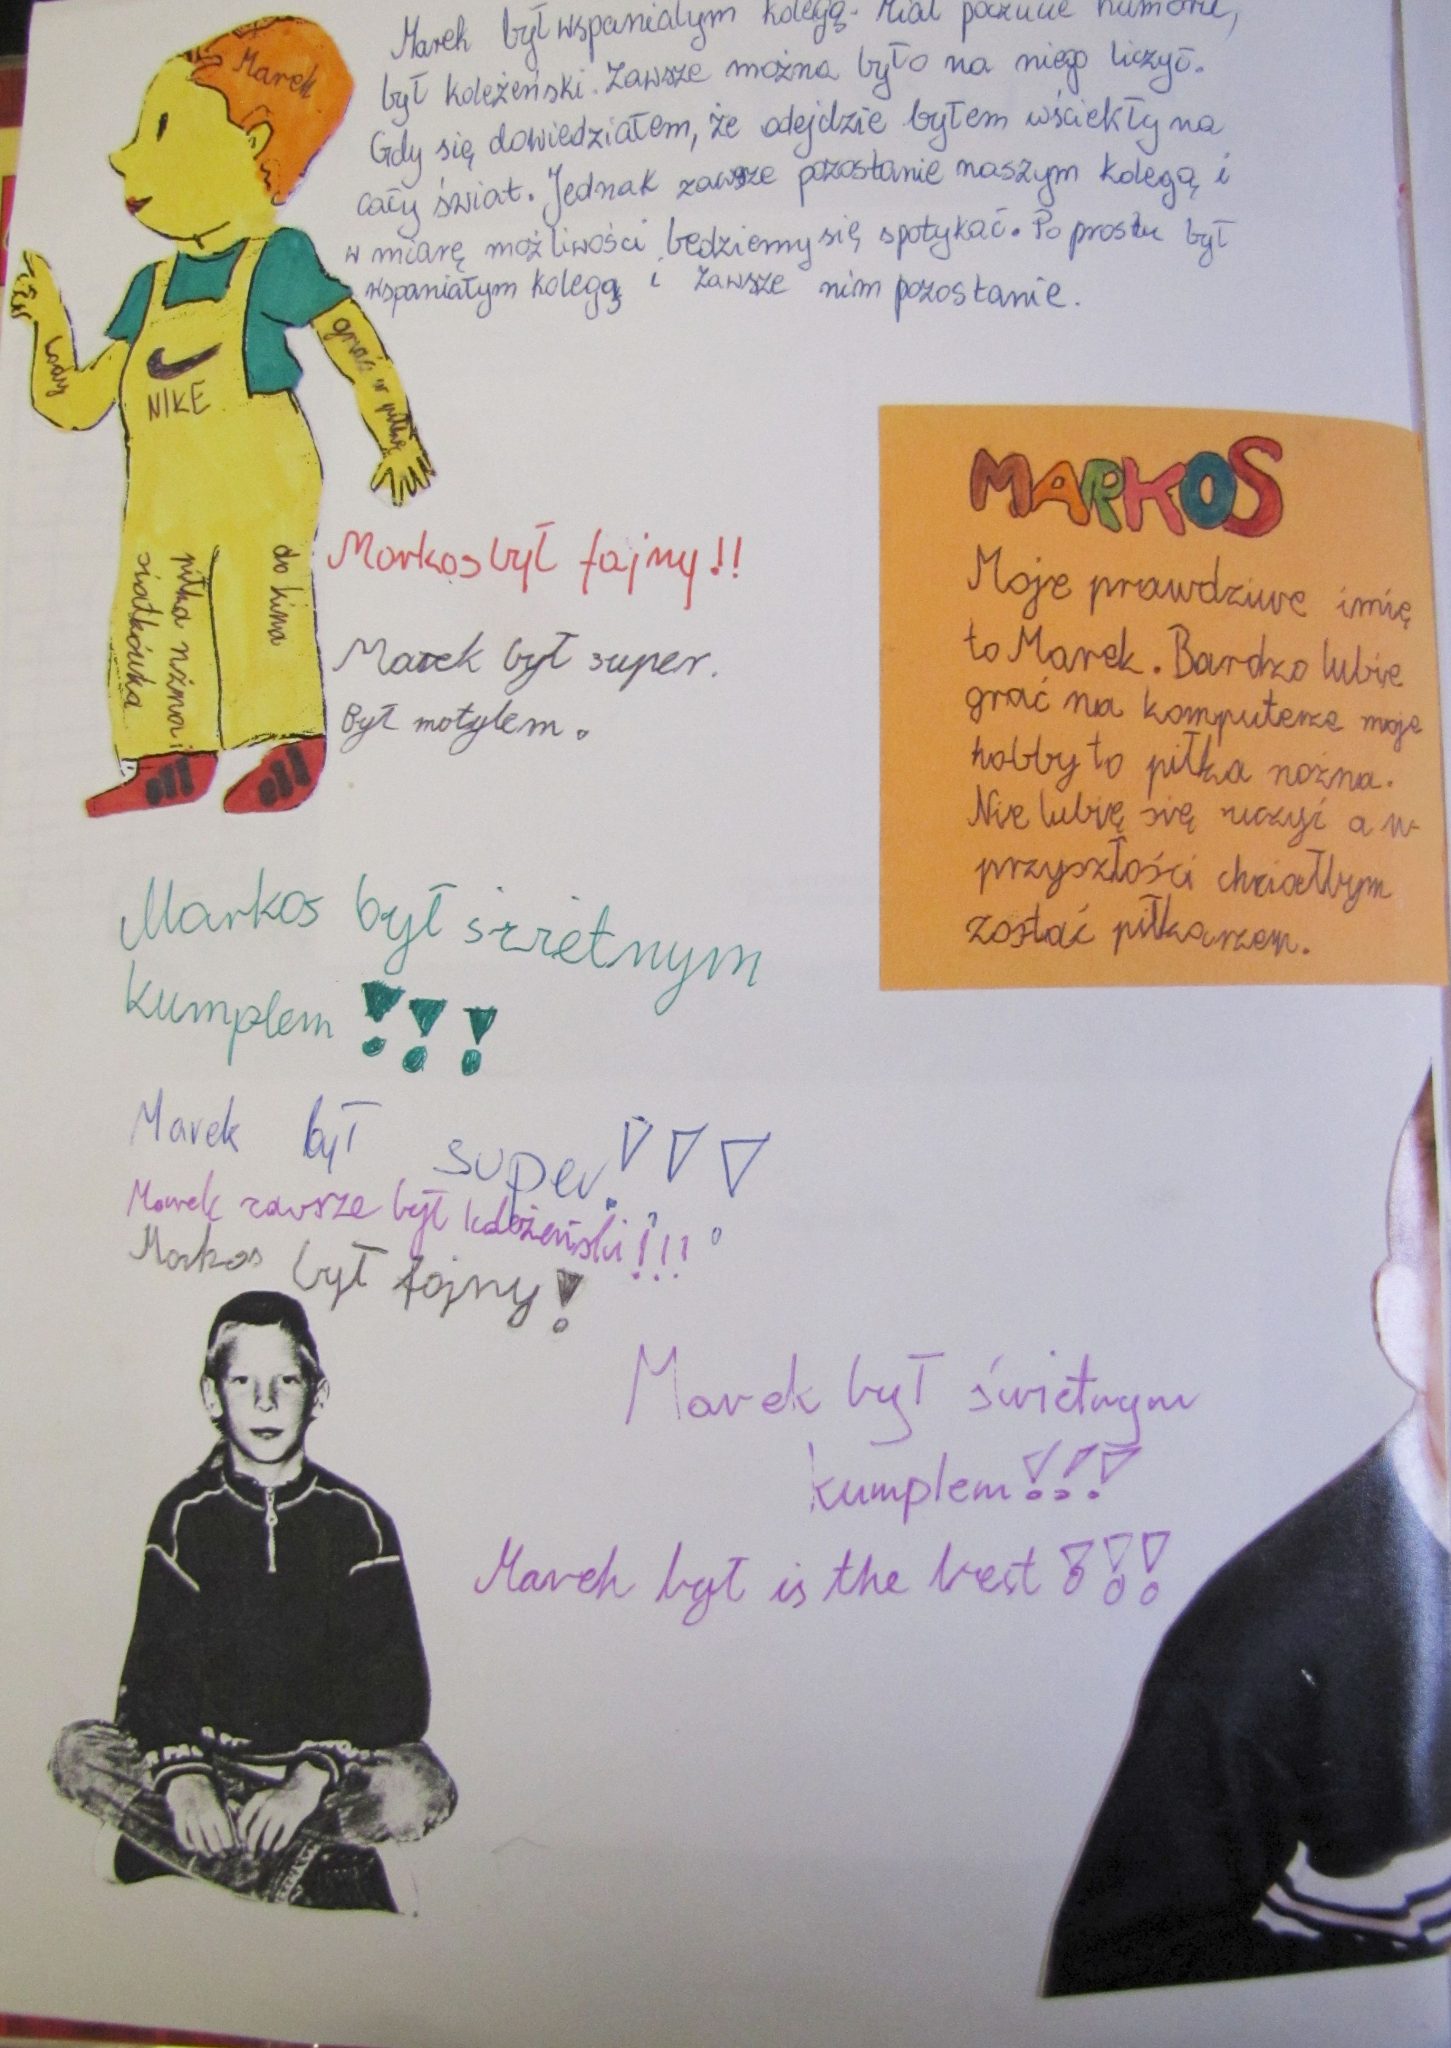 Marek był wspaniałym kolegą. Miał poczucie humoru,
był koleżeński. Zawsze można było na niego liczyć.
Gdy się dowiedziałem, że odejdzie byłem wściekły na
cały świat. Jednak zawsze pozostanie naszym kolegą i
w miarę możliwości będziemy się spotykać. Po prostu był
wspaniałym kolegą i zawsze nim pozostanie.
Marek
lody
grać w piłkę
NIKE
do kina
piłka nożna i
siatkówka
Markos był fajny!!
Marek był super.
Był motylem.
MARKOS
Moje prawdziwe imię
to Marek. Bardzo lubię
grać na komputerze moje
hobby to piłka nożna.
Nie lubię się uczyć a w
przyszłości chciałbym
zostać piłkarzem.
Markos był świetnym
kumplem !!!
Marek był super!!!
Marek zawsze był koleżeński!!!
Markos był fajny!
Marek był świetnym
kumplem!!!
Marek był is the best !!!